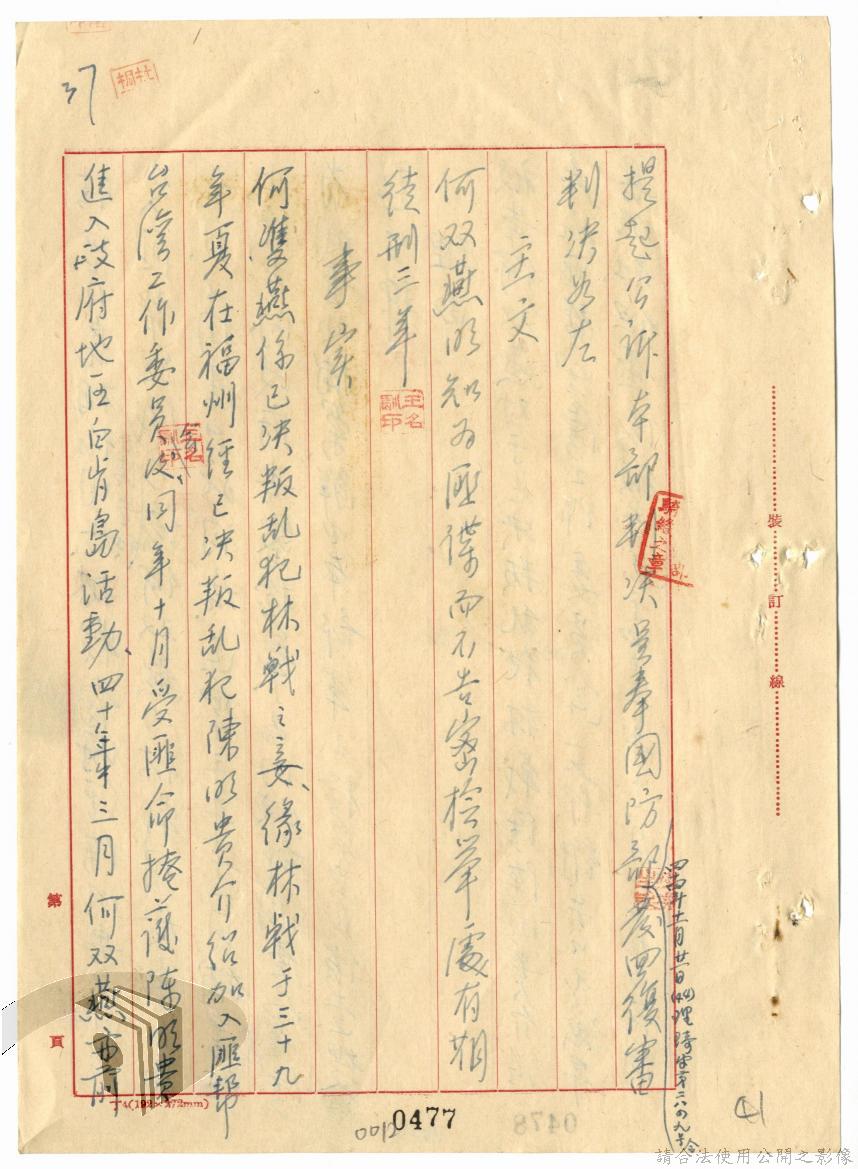 提起公訴本部判決呈奉國防部發回復審
判決如左
主文
何双燕明知为匪諜而不告密檢举處有期
徒刑三年
事实
何雙燕係已決叛乱犯林戰之妾、緣林戰于三十九
年夏在福州經已決叛乱犯陳明貴介紹加入匪幫
台灣工作委員会同年十月受匪命掩護陳明貴
進入政府地区白肯島活動、四十年三月何双燕亦前
王名馴印
騎縫之章
裝訂線
第 頁
0477
0012
37
41
請合法使用公開之影像